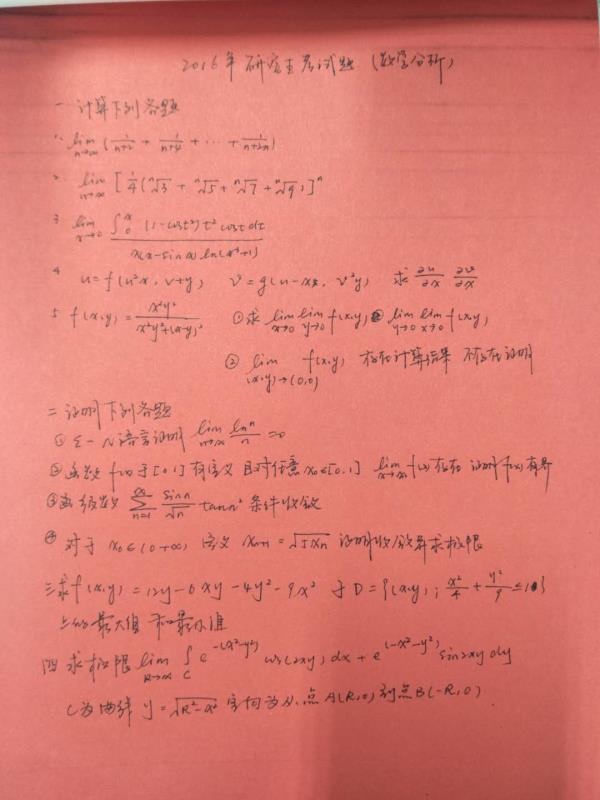 2016年研究生考试题 (数学分析)
一 计算下列各题
1. lim n→∞ (1/(n+2) + 1/(n+4) + ... + 1/(n+2n))
2. lim n→∞ [1/4(ⁿ√3 + ⁿ√5 + ⁿ√7 + ⁿ√9)]ⁿ
3 lim x→0 ∫₀ˣ (1-cost²)t² cost dt / x(x-sinx) ln(x⁴+1)
4 u=f(u²x, v+y) v=g(u-x, v²y) 求 ∂u/∂x ∂v/∂x
5 f(x,y) = x²y²/(x²y²+(x-y)²) ①求 lim x→0 lim y→0 f(x,y) lim y→0 lim x→0 f(x,y)
② lim (x,y)→(0,0) f(x,y) 存在计算结果 不存在证明
二 证明下列各题
① ε-N语言证明 lim n→∞ lnn/n =0
② 函数 f(x) 于[0,1]有定义 且对任意 x₀∈[0,1] lim x→x₀ f(x)存在 证明f(x)有界
③ 级数 ∑ n=1 ∞ sinn/√n 条件收敛
④ 对于 x₀∈(0+∞) 定义 xn+1 = √5xn 证明收敛并求极限
三 求 f(x,y) = 12y-6xy-4y²-9x² 于 D={(x,y); x²/4 + y²/9 ≤
上的最大值和最小值
四 求极限 lim R→∞ ∫c e^-(x²-y²) cos(2xy) dx + e^(-x²-y²) sin2xy dy
C为曲线 y=√R²-x² 方向为从点A(R,0)到点B(-R,0)